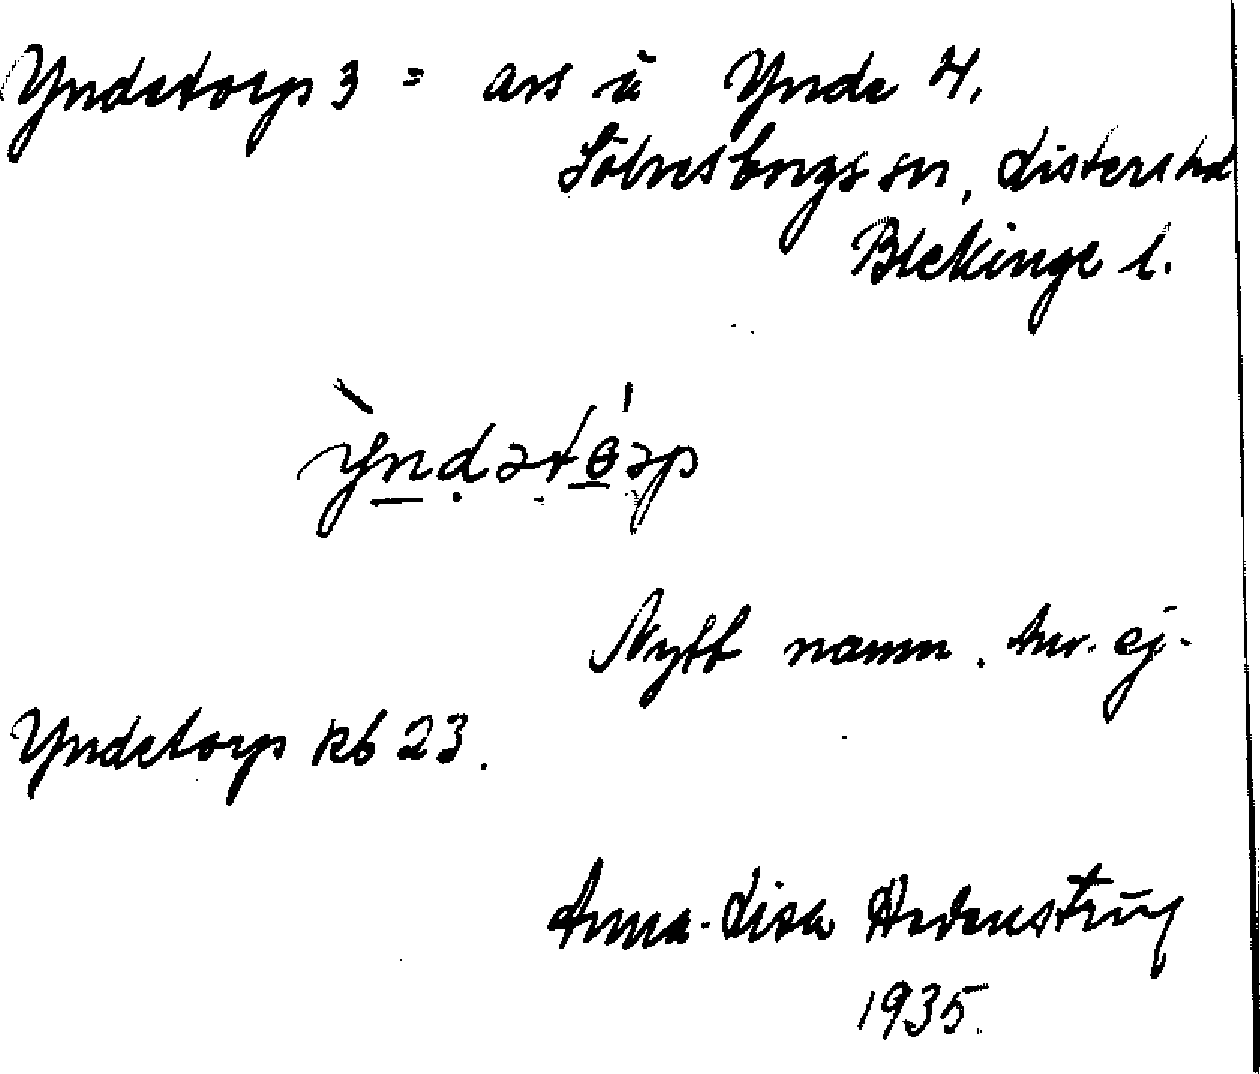 Yndetorp 3 = avs å Ynde 4,
Sölvesborgs sn, Listers hd
Blekinge l.
Nytt namn. Anv. ej.
Yndetorp kb 23.
Anna-Lisa
1935.